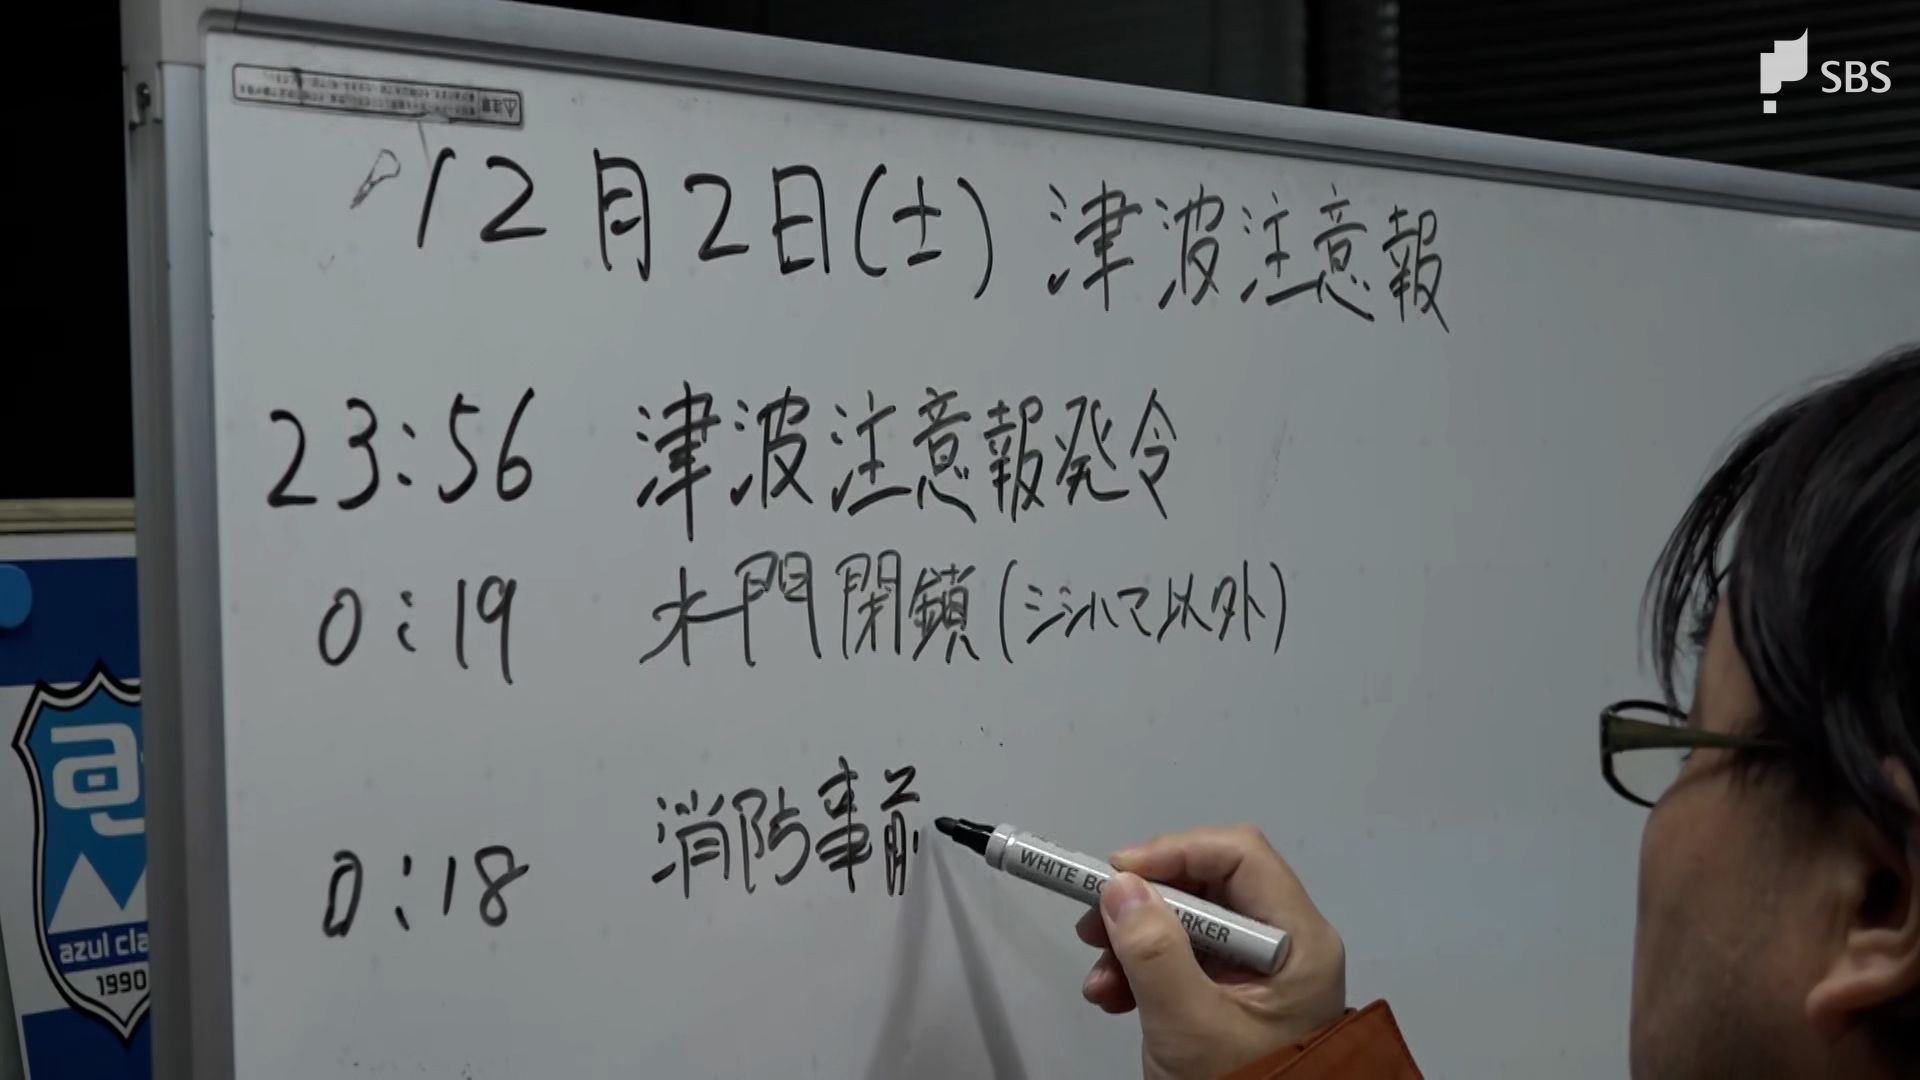 SBS
12月2日(土) 津波注意報
23:56 津波注意報発令
0:19 水門閉鎖(以外)
0:18 消防事前
WHITE BO ARKER
azul cla
1990